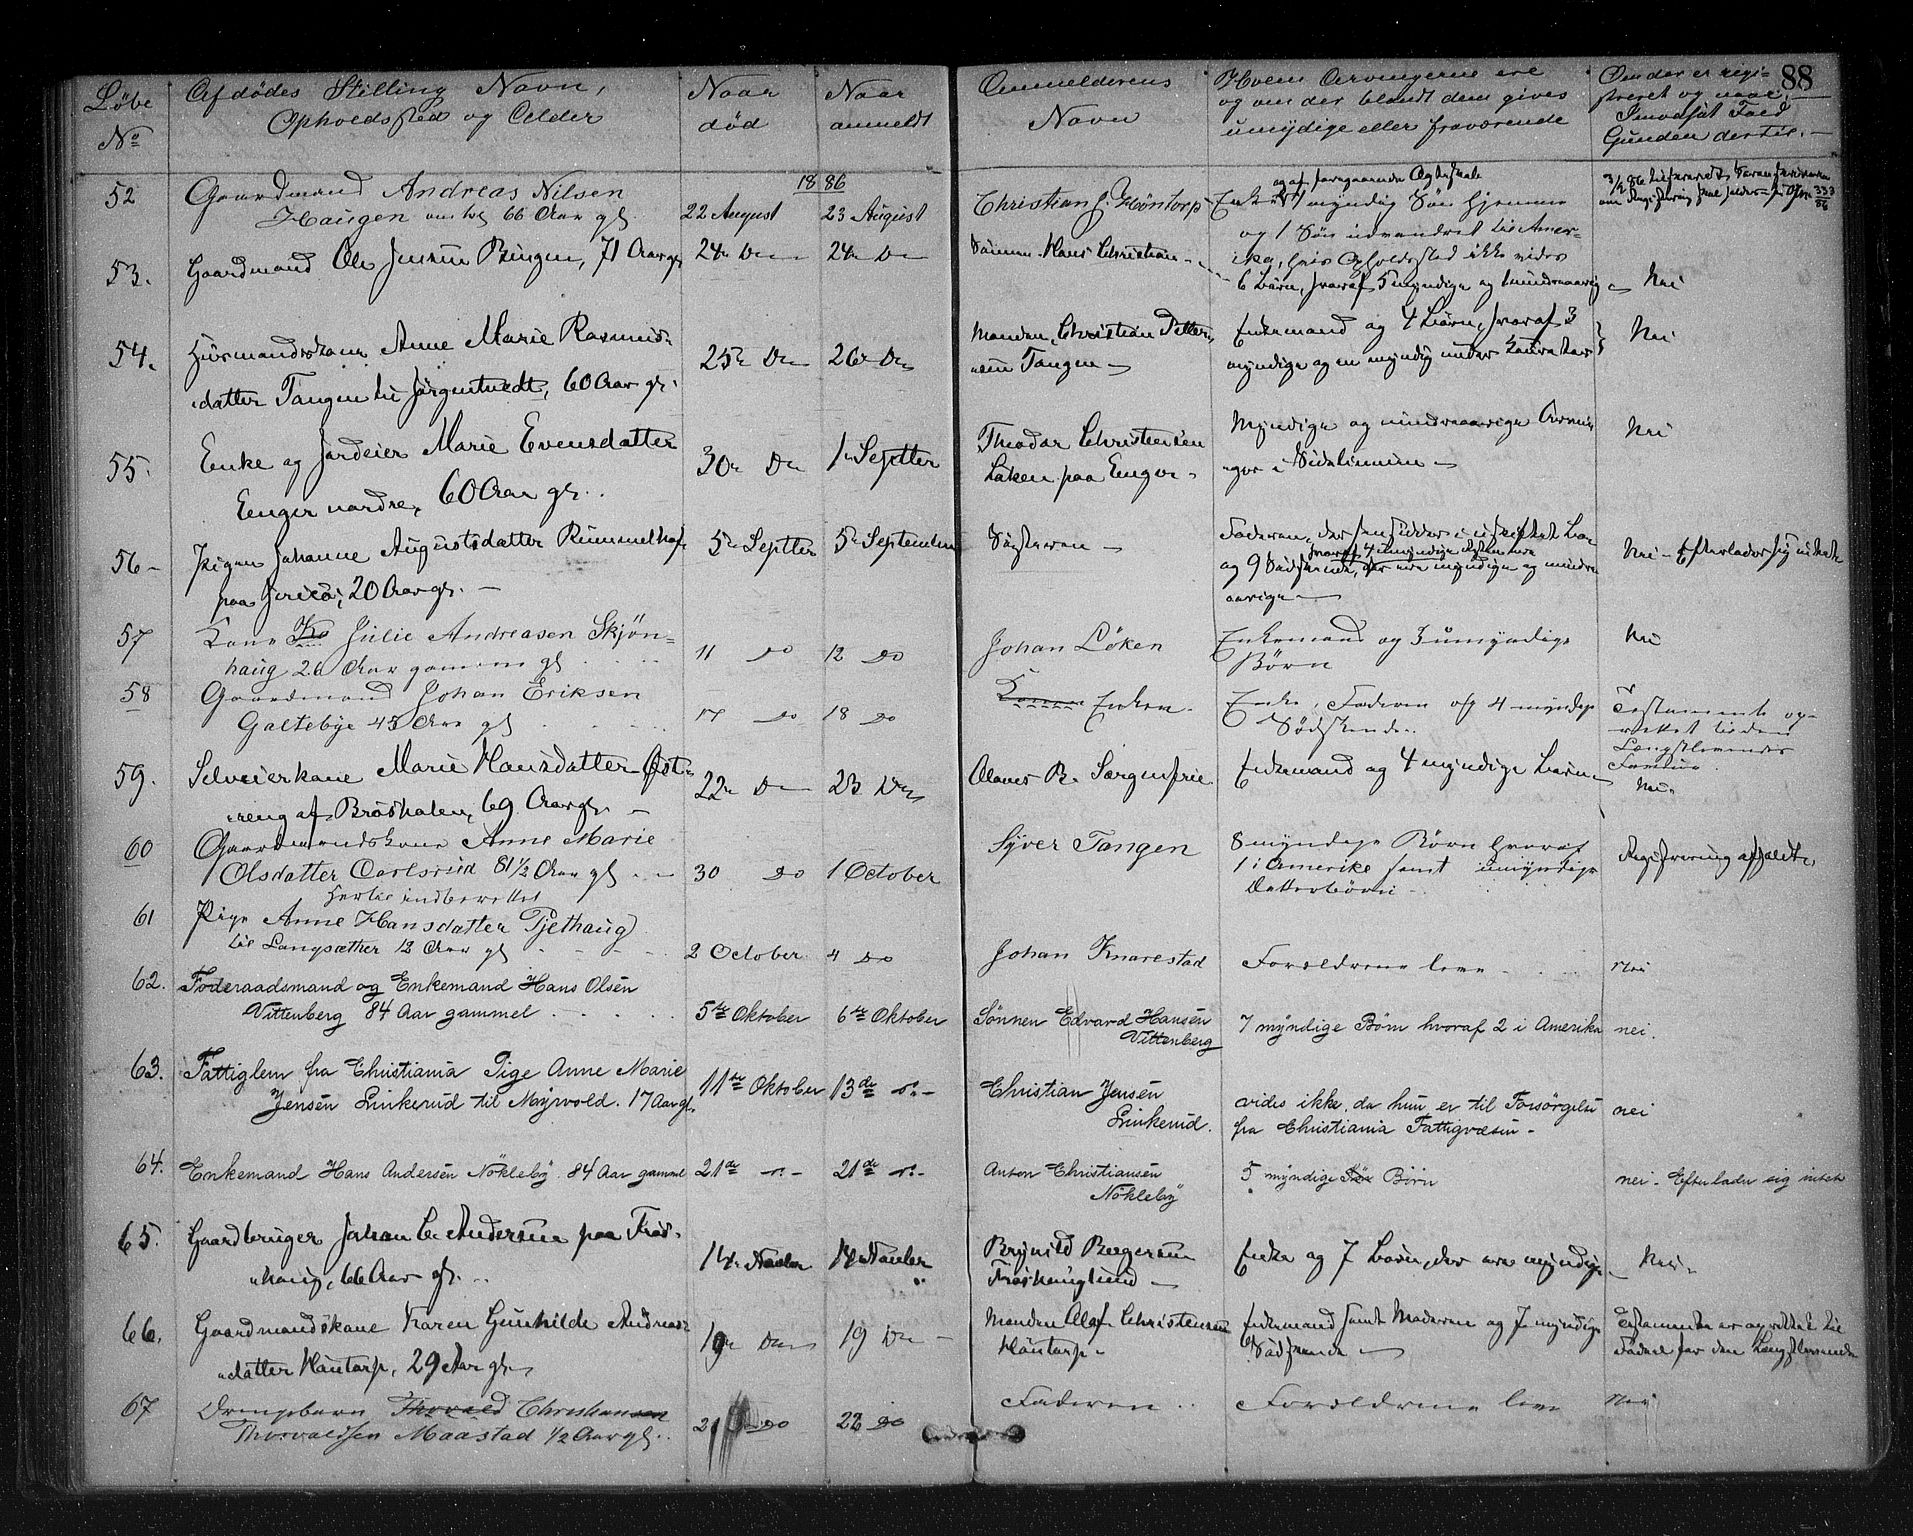 88
Löbe No | Afdödes Stilling Navn, Opholdssted og Alder | Naar död | Naar anmeldt | Anmelderens Navn | Hvem Arvingerne ere og om der blandt dem gives umyndige eller fraværende | Om der er regi-
streret og naar,
Imodsat Fald
Grunden dertil.
1886
52 Gaardmand Andreas Nilsen
Haugen omtr 66 Aar gl. 22 August 23 August Christian J. Höntorp Enke og 1 myndig Søn hjemme
og 1 Søn udvandret til Amer-
ika, hvis Opholdssted ikke vides
53. Gaardmand Ole Jensen Bingen, 71 Aar gl 24de Do 24de Do Sönnen Hans Christian
6 Børn, hvoraf 5 myndige og 1 mindreaarig Nei
54. Husmandskone Anne Marie Rasmus-
datter Tangen til Jörgentvedt, 60 Aar gl. 25de Do 26de Do Manden, Christian Petter-
sen Tangen Enkemand og 4 Børn, hvoraf 3
myndige og en myndig under Nei
55. Enke og Jordeier Marie Evensdatter
Enger nordre, 60 Aar gl. 30te Do 1ste Septbr Theodor Christensen
Løken paa Enger Myndige og mindreaarige Arvin-
ger i Sidelinien Nei
56 Pigen Johanne Augustsdatter Rummelhof
paa Jerico, 20 Aar gl. 5te Septbr 5te September Søsteren Faderen, der hensidder i uskiftet Bo
og 9 Sødskende, der ere myndige og mindre
aarige Nei - Efterlader sig intet
57 Kone Julie Andreasen Skjøn-
haug 26 Aar gammel gl 11 Do 12 Do Johan Löken Enkemand og 3 umyndige
Børn Nei
58 Gaardmand Johan Eriksen
Galtebye 45 Aar gl 17 Do 18 Do Enken Enke, Faderen og 4 myndige
Sødskende Testamente op-
rettet til den
Længstlevendes
59. Selveierkone Marie Hansdatter Øst-
reng af Bröshalen, 69 Aar gl. 22de Do 23 Do Olaves B. Sorgenfrie Enkemand og 4 myndige Børn Nei
60 Gaardmandskone Anne Marie
Olsdatter Carlsrud 81½ Aar gl 30 Do 1 October Syver Tangen 8 myndige Børn hvoraf
1 i Amerika samt umyndige
Datterbørn Registrering afholdt
Hertil indberettet
61 Pige Anne Hansdatter Tjethaug
til Langsæther 12 Aar gl 2 October 4 Do Johan Knarestad Forældrene leve Nei
62. Föderaadsmand og Enkemand Hans Olsen
Vittenberg 84 Aar gammel 5te Oktober 6te Oktober Sönnen Edvard Hansen
Vittenberg 7 myndige Börn hvoraf 2 i Amerika nei.
63. Fattiglem fra Christiania Pige Anne Marie
Jensen Linkerud til Myrvold. 17 Aar gl. 11te Oktober 13de Christian Jensen
Linkerud. vides ikke, da hun er til Forsörgelse
fra Christiania Fattigvæsen - nei
64. Enkemand Hans Andersen Nökleby 84 Aar gammel 21de 21de Anton Christiansen
Nökleby 5 myndige Börn nei - Efterlader sig intet
65. Gaardbruger Johan C. Andersen paa Frös-
haug, 66 Aar gl. 14de Novbr 14de Novbr Brynild Børgersen
Fröshauglund Enke og 7 Børn, der ere myndige Nei
66. Gaardmandskone Karen Gunhilde Andreas-
datter Höntorp, 29 Aar gl. 19de Do 19 Do Manden Olaf Christensen
Höntorp Enkemand samt Moderen og 7 myndige
Sødskende Testamente er oprettet til
Fordel for den Længstlevende
67 Drengebarn Thorvald Christiansen
Thorvaldsen Maastad ½ Aar gl. 21 Do 22 Do Faderen Forældrene leve Nei